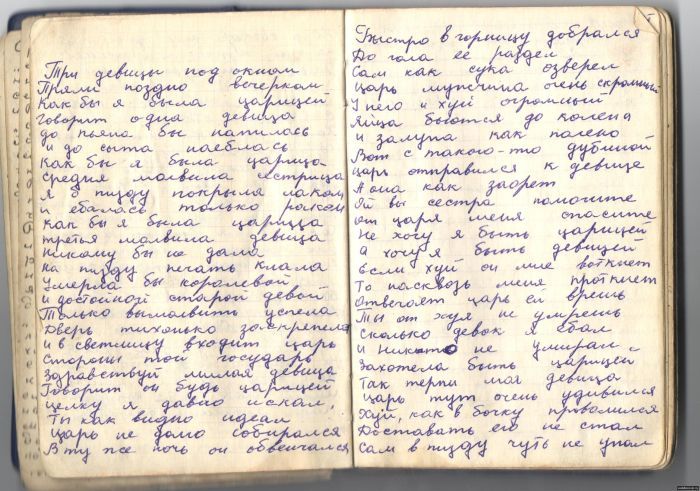 Три девицы под окном
Пряли поздно вечерком
Как бы я была царицей
говорит одна девица
до пьяна бы напилась
и до сыта наеблась
Как бы я была царица
средня молвила сестрица
Я б пизду покрыла лаком
и еблась только раком
Как бы я была царицца
третья молвила девица
Никому бы не дала
На пизду печать клала
Умерла бы королевой
и достойной старой девой
Только вымолвить успела
Дверь тихонько заскрепела
и в светлицу входит царь
Стороны той государь
Здравствуй милая девица
Говорит он будь царицей
Целку я давно искал,
Ты как видно идеал
Царь не долго собирался
В ту же ночь он обвенчался
Быстро в горницу добрался
До гола её раздел
Сам как сука озверел
Царь мужчина очень скромный
У него и хуй огромный
Яйца бьются до колена
и залупа как полено
Вот с такого-то дубиной
царь отправился к девице
А она как заорет
Ой вы сестра помогите
от царя меня спасите
Не хочу я быть царицей
а хочу я быть девицей
Если хуй он мне воткнет
То насквозь меня проткнет
Отвечает царь ей врешь
Ты от хуя не умрешь
Сколько девок я ебал
и никто не умирал
Захотела быть царицей
Так терпи моя девица
Царь тут очень удивился
Хуй, как в бочку провалился
Доставать его не стал
Сам в пизду чуть не упал